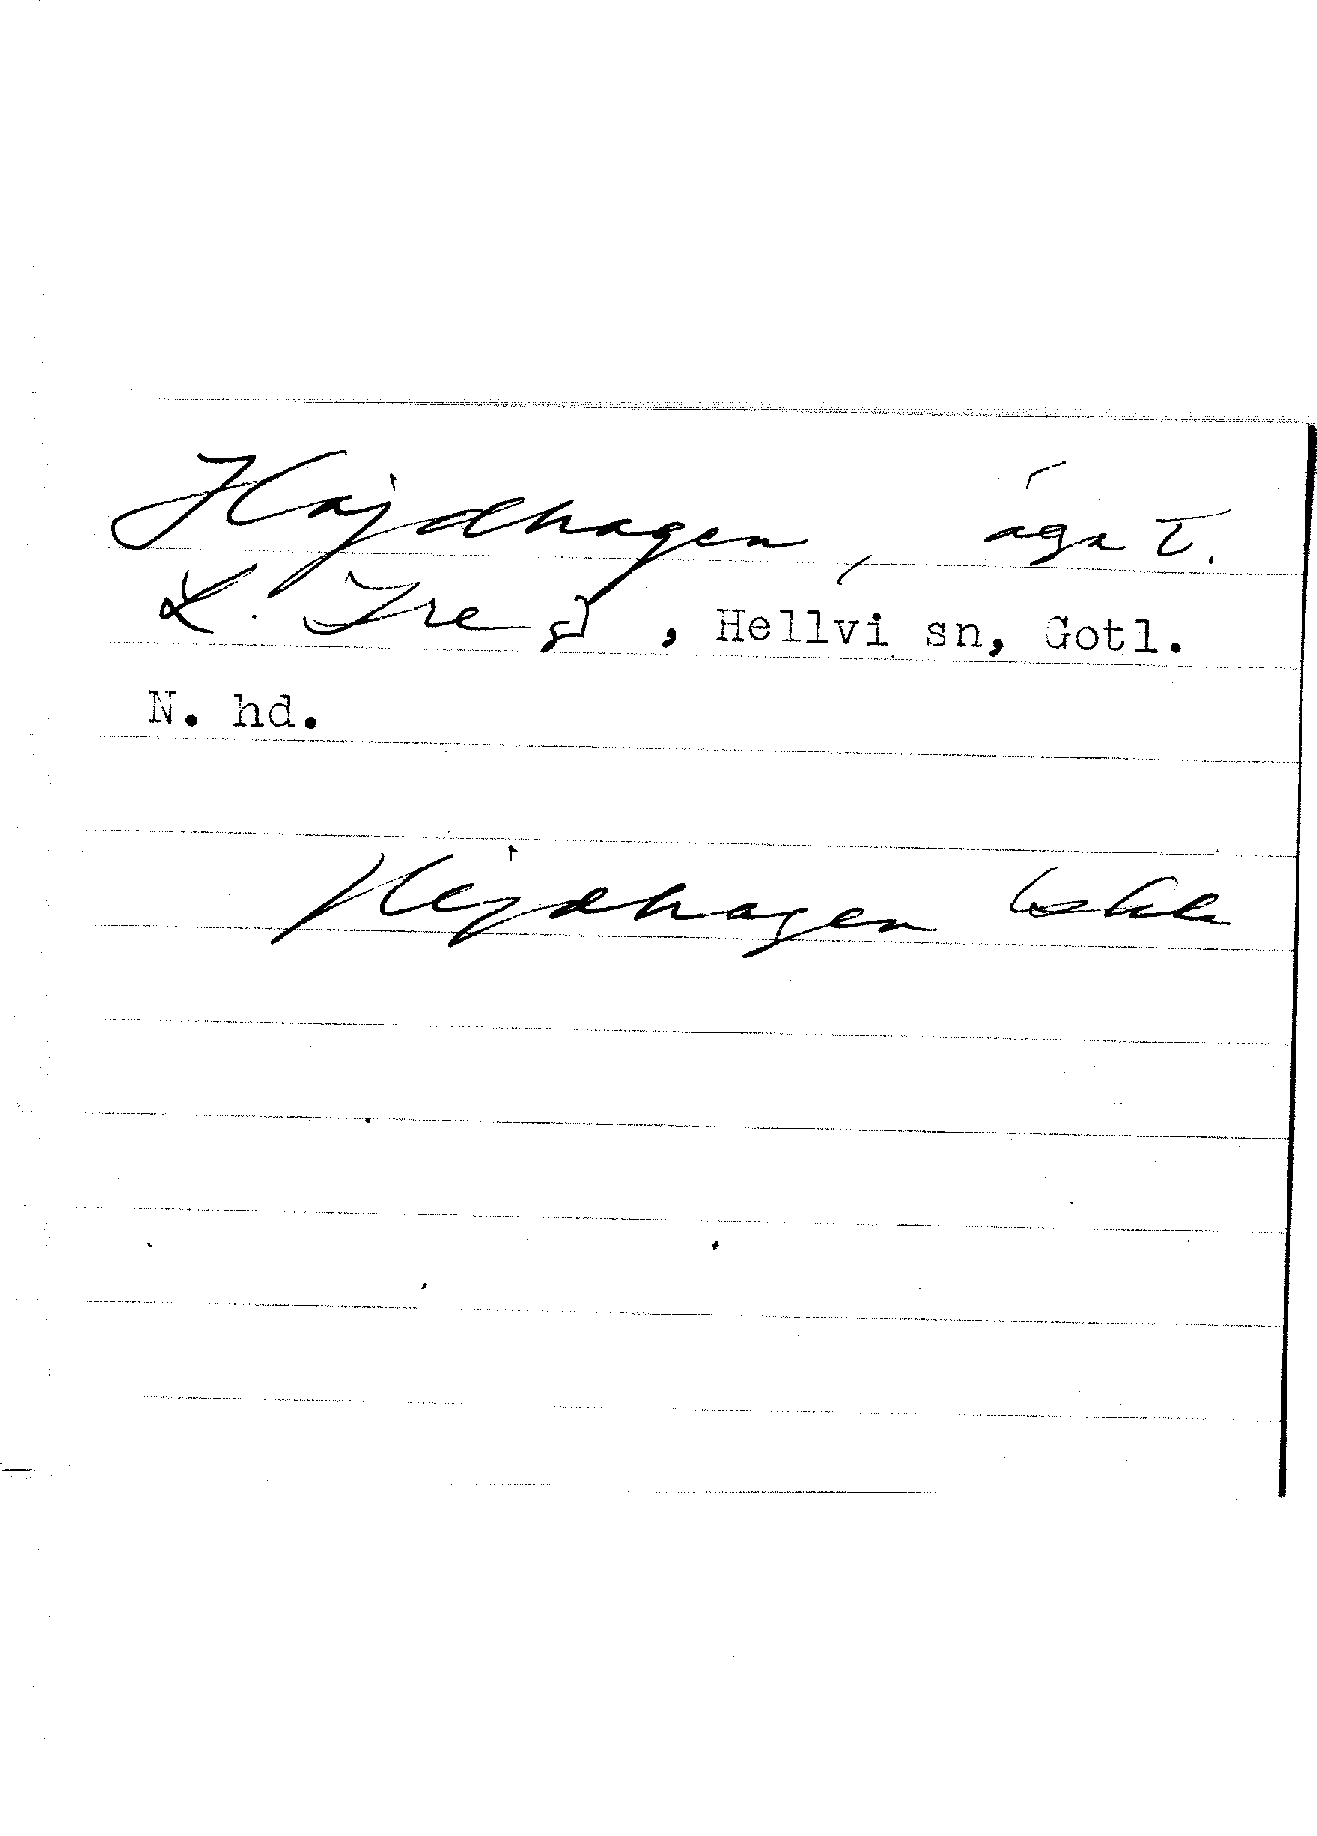 Hajdhagen, äga t.
L. Ire gd, Hellvi sn, Gotl.
N. hd.
Hejdhagen